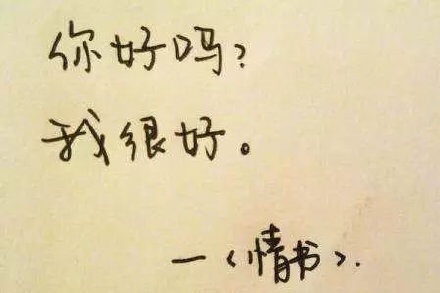 你好吗？
我很好。
—《情书》.